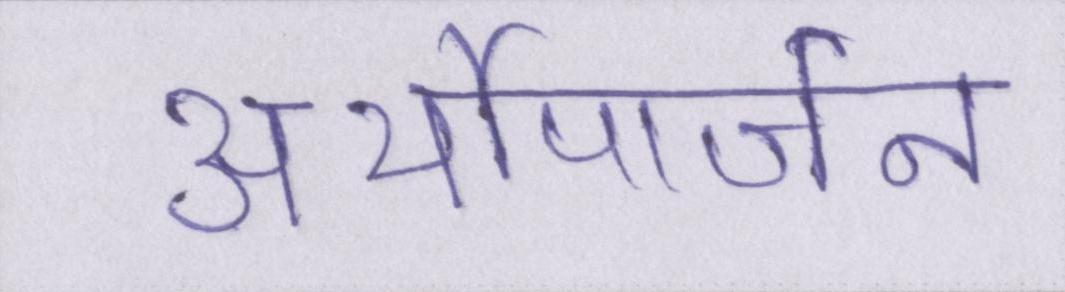 अर्थोपार्जन